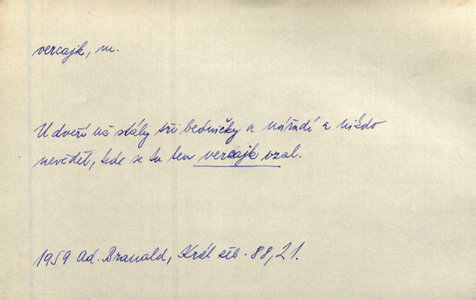 vercajk, m.
U dveří už stály tři bedničky a nářadí a nikdo
nevěděl, kde se tu ten vercajk vzal.
1959 Ad. Branald, Král stb. 88, 21.